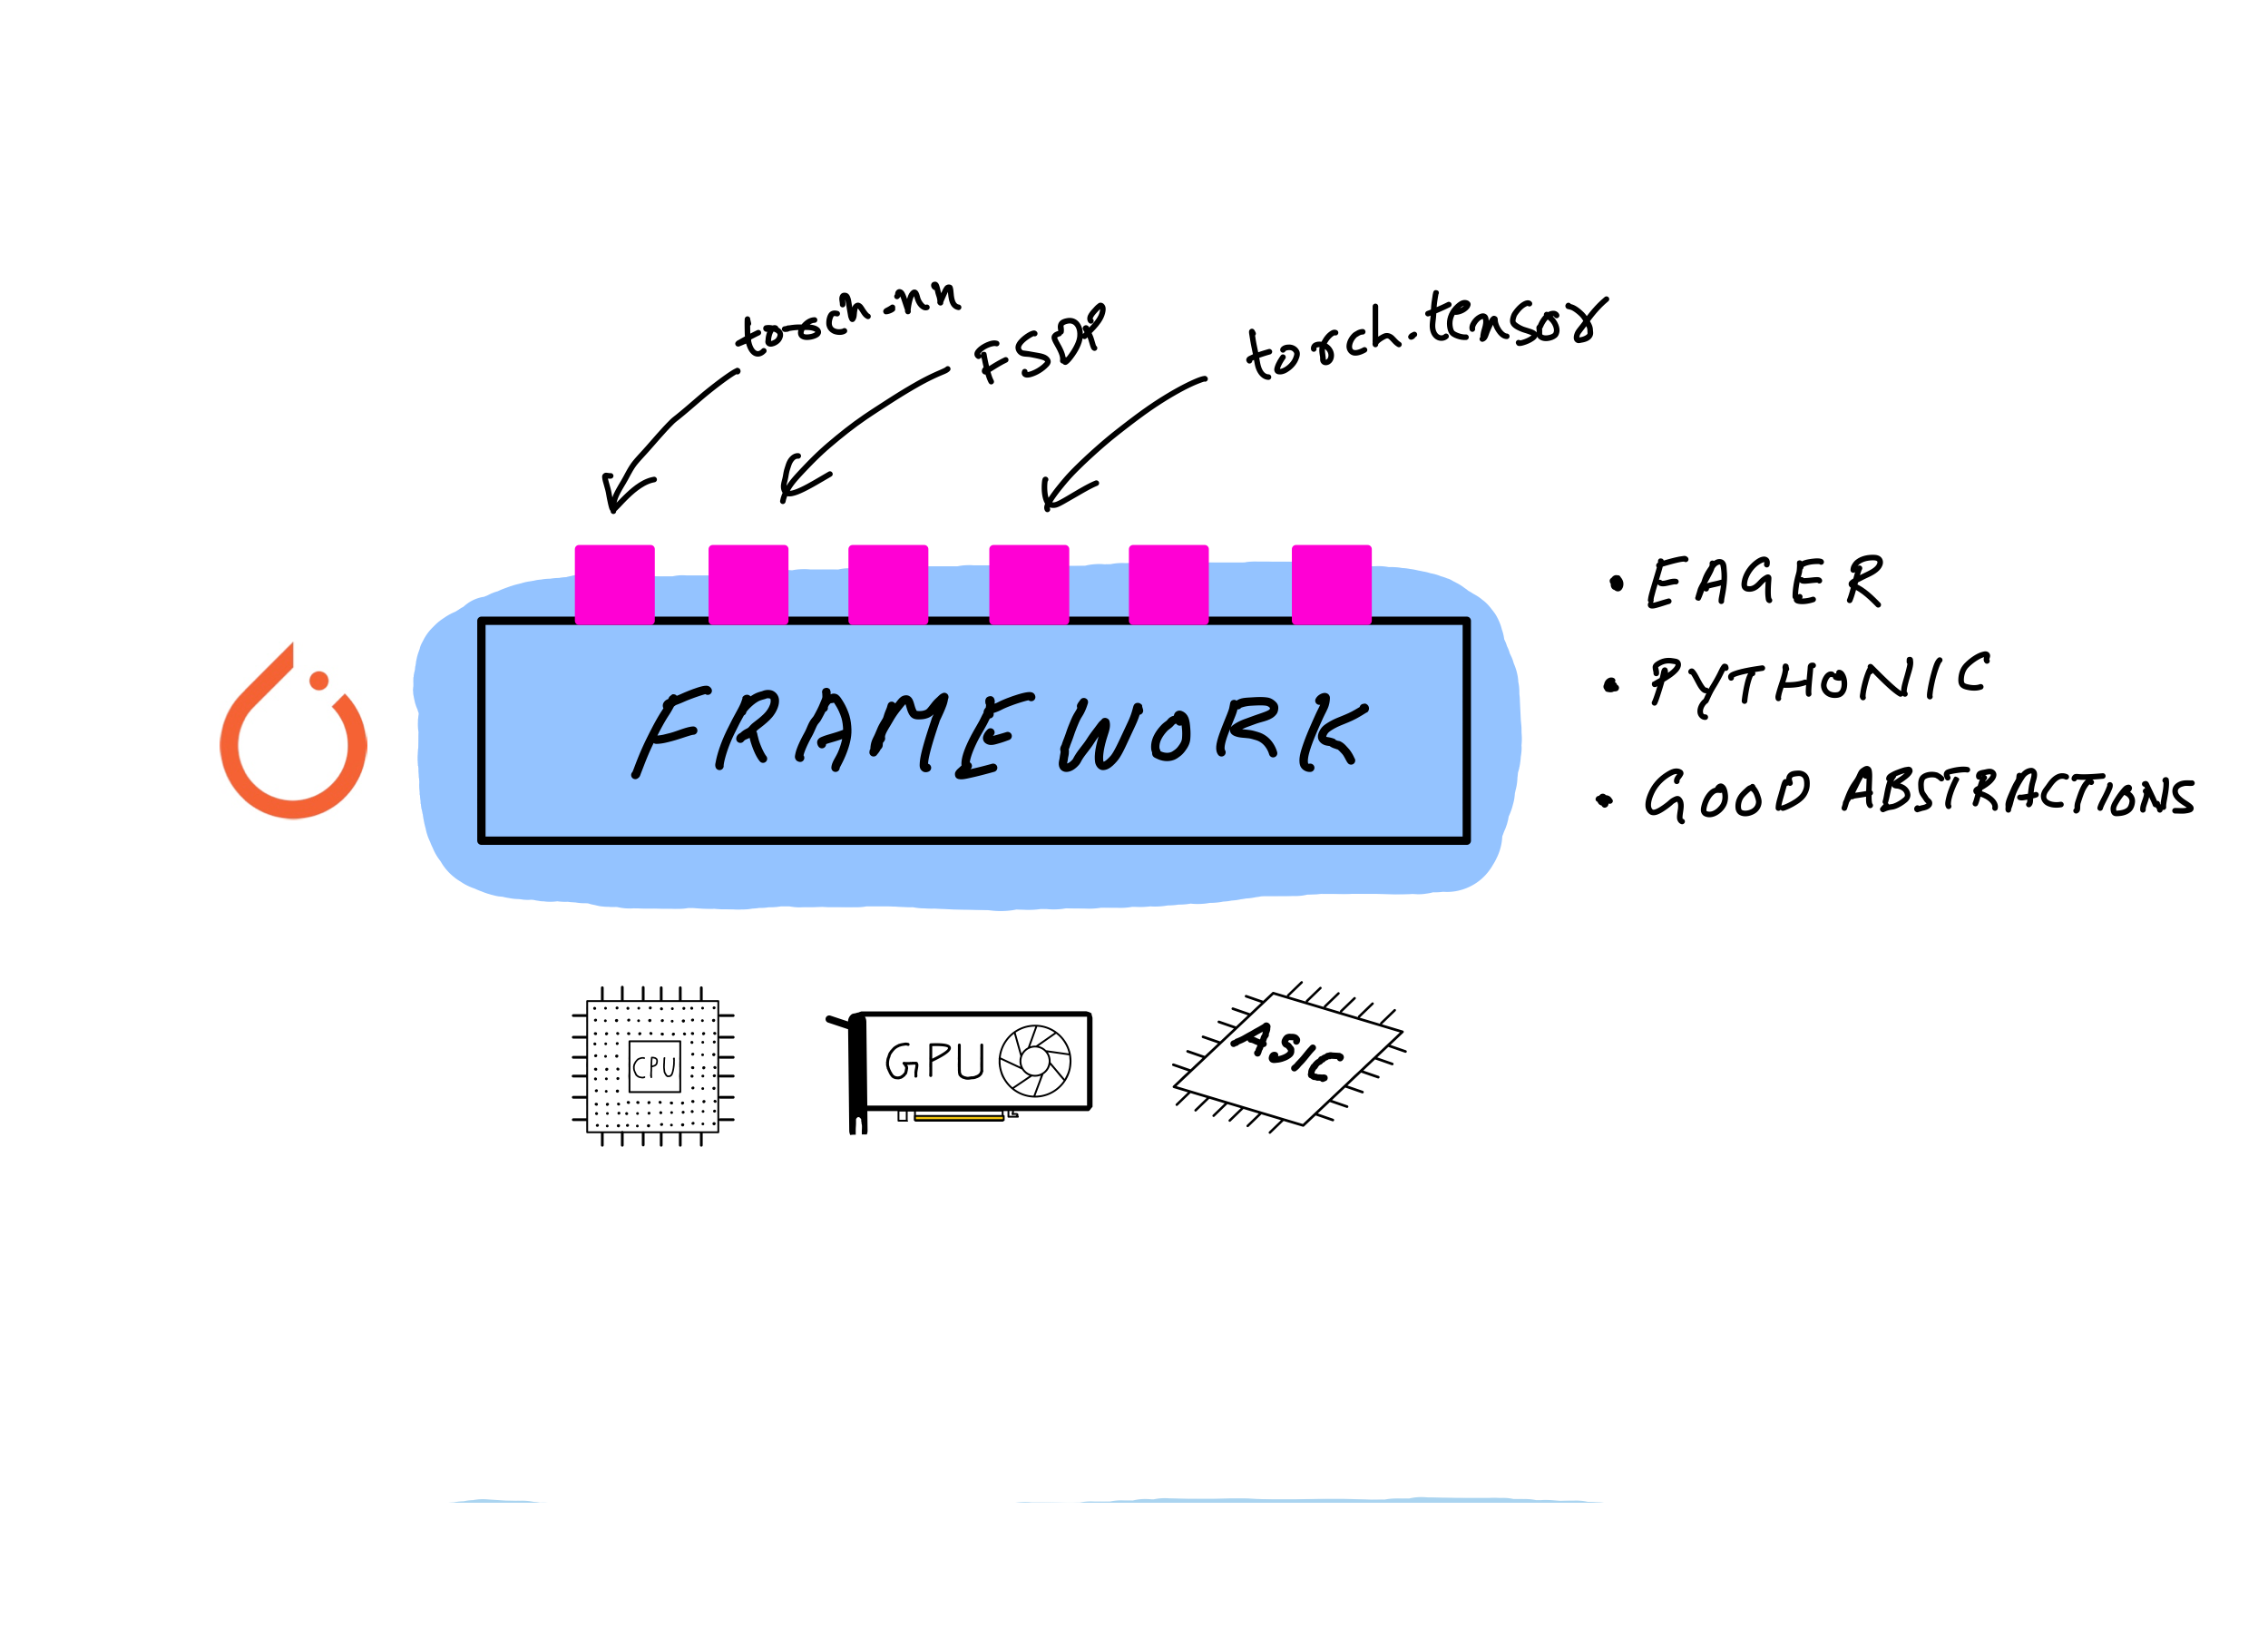 torch.nn
FSDP
torch.tensor
FRAMEWORK
• EAGER
• PYTHONIC
• GOOD ABSTRACTIONS
CPU
GPU
ASIC